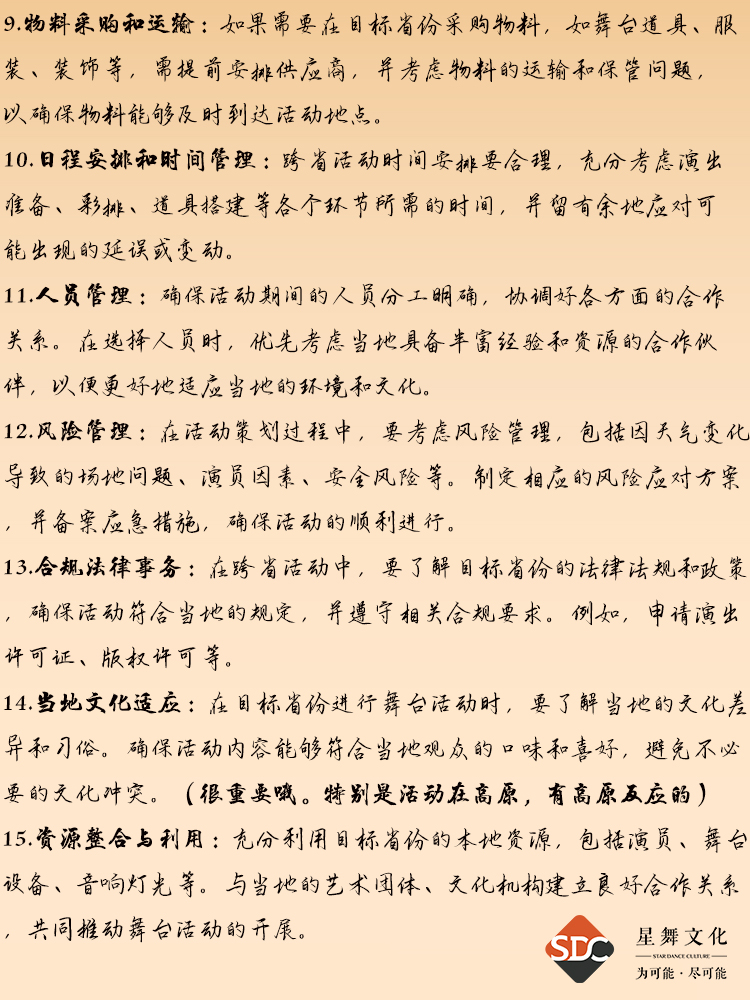 9.物料采购和运输：如果需要在目标省份采购物料，如舞台道具、服
装、装饰等，需提前安排供应商，并考虑物料的运输和保管问题，
以确保物料能够及时到达活动地点。
10.日程安排和时间管理：跨省活动时间安排要合理，充分考虑演出
准备、彩排、道具搭建等各个环节所需的时间，并留有余地应对可
能出现的延误或变动。
11.人员管理：确保活动期间的人员分工明确，协调好各方面的合作
关系。在选择人员时，优先考虑当地具备丰富经验和资源的合作伙
伴，以便更好地适应当地的环境和文化。
12.风险管理：在活动策划过程中，要考虑风险管理，包括因天气变化
导致的场地问题、演员因素、安全风险等。制定相应的风险应对方案
，并备案应急措施，确保活动的顺利进行。
13.合规法律事务：在跨省活动中，要了解目标省份的法律法规和政策
，确保活动符合当地的规定，并遵守相关合规要求。例如，申请演出
许可证、版权许可等。
14.当地文化适应：在目标省份进行舞台活动时，要了解当地的文化差
异和习俗。确保活动内容能够符合当地观众的口味和喜好，避免不必
要的文化冲突。（很重要哦。特别是活动在高原，有高原反应的）
15.资源整合与利用：充分利用目标省份的本地资源，包括演员、舞台
设备、音响灯光等。与当地的艺术团体、文化机构建立良好合作关系
，共同推动舞台活动的开展。
SDC
星舞文化
STAR DANCE CULTURE
为可能·尽可能